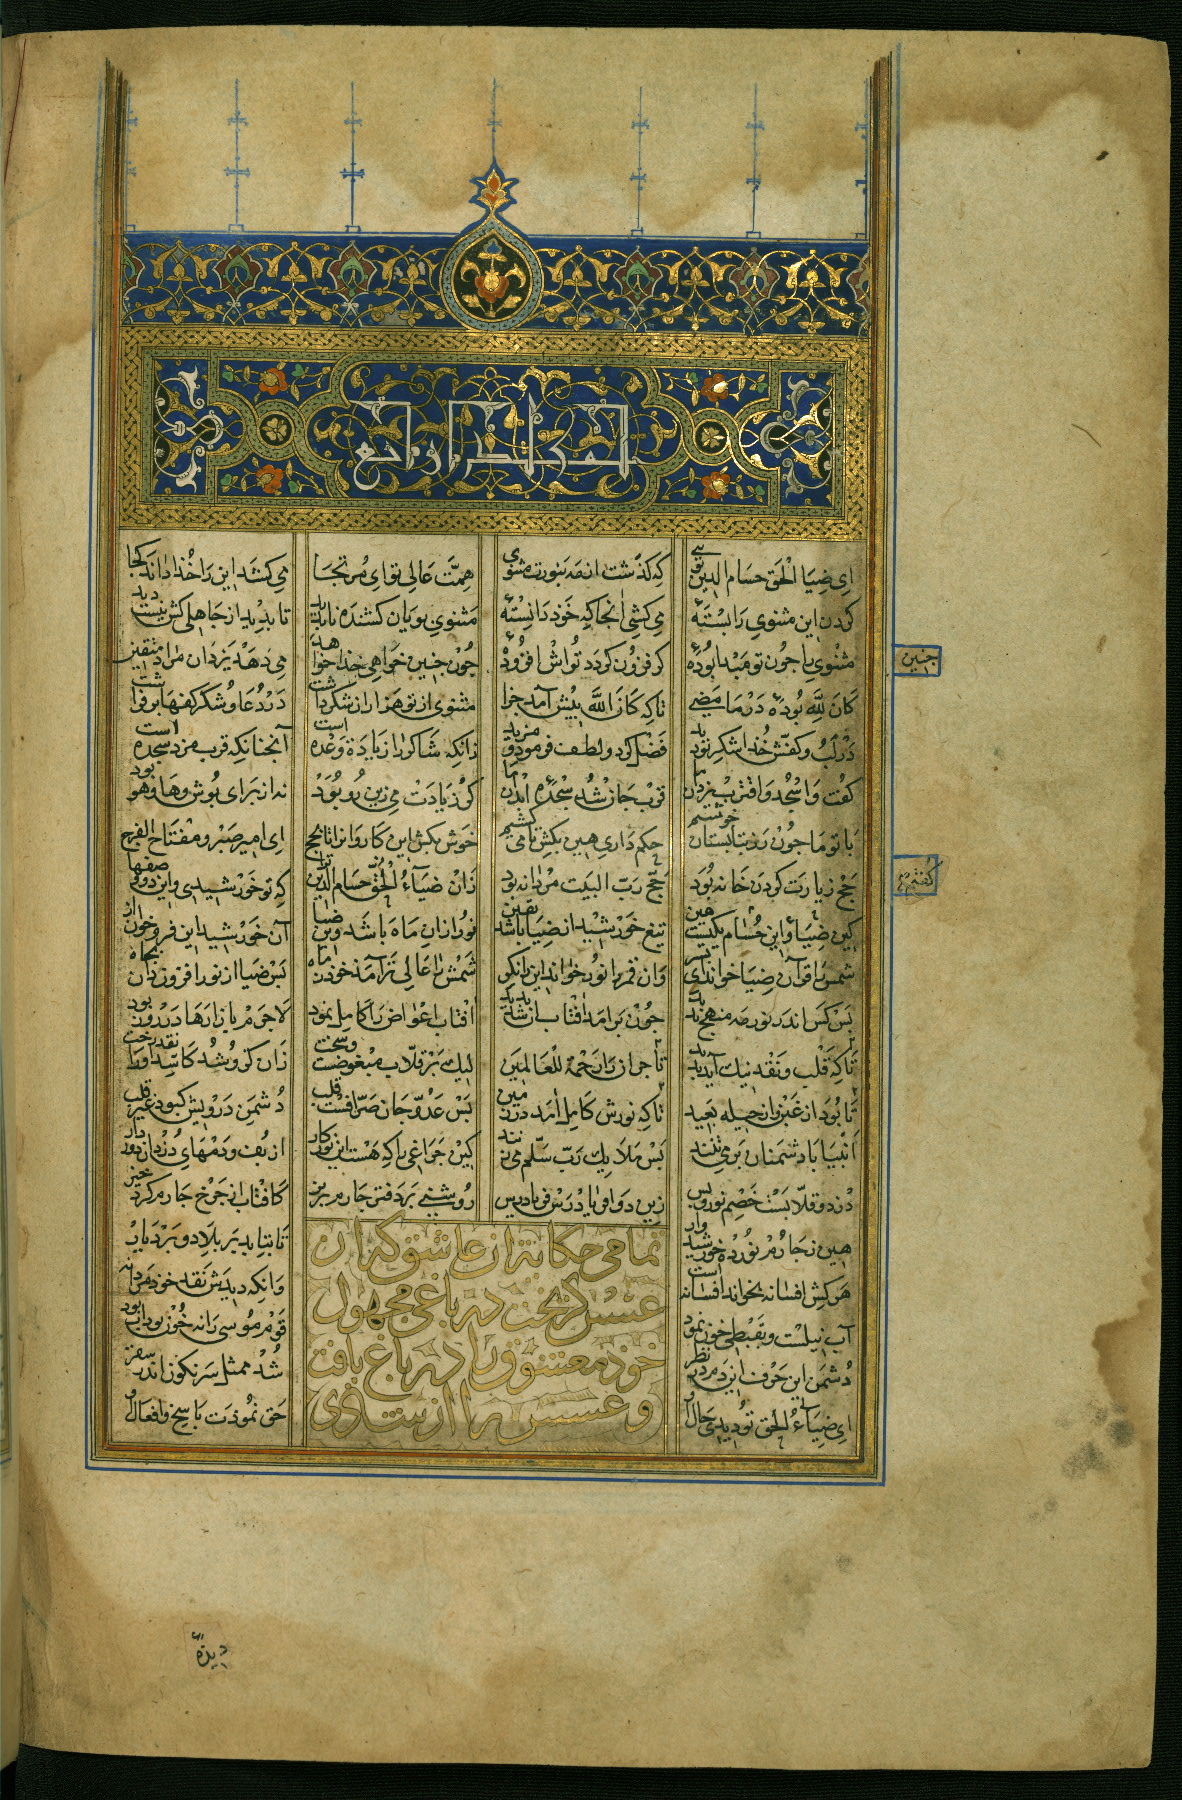 ای ضیا الحق حسام الدین توی که کذشت از مه بنورت مثنوی همت عالی تو ای مرتجا می کشد این را خدا داند کجا
کردن این مثنوی را بستهٔ می کشی انجا که خود دانستهٔ مثنوی پویان کشنده ناپدید تا بدید از جاهلی کش نیست دید
مثنوی را چون تو مبدا بودهٔ کر فزون کردد تواش افزودهٔ چون چنین خواهی خدا خواهد می دهد یزدان مراد متقین
چنین
کان لله بودهٔ در ما مضی تا که کان الله پیش آمد جزا مثنوی از تو هزاران شکر داشت در دعا و شکر کفها بر فراشت
در لب و کفش خدا شکر تو دید فضل کرد و لطف فرمود و مزید زانکه شاکر را زیادة وعده است آنچنانکه قرب مزد سجده است
کفت واسجد واقترب یزدان ما قرب جان شد سجدهٔ ابدان ما کر زیادت می زین رو بود نه از برای بوش و ها و هو بود
با تو ما چون رز بتابستان خوشیم حکم داری هین بکش تا می کشیم خوش بکش این کاروان را تا بحج ای امیر صبر و مفتاح الفرج
حج زیارت کردن خانه بود حج رب البیت مردانه بود زان ضیاء الحق حسام الدین ترا که تو خورشیدی و این دو وصفها
کین ضیا و این حسام یکیست هین تیغ خورشید از ضیا باشد یقین نور ازان ماه باشد وین ضیا آن خورشید این فرو خوان از
شمس را قرآن ضیا خواند ای پسر وان قمر را نور خواند این را نکر شمس را عالی تر آمد خود ز ماه پس ضیا از نور افزون دان بجاه
بس کس اندر نور مه منهج ندید چون برامد افتاب ان شد پدید افتاب اعواض را کامل نمود لاجرم بازارها در روز بود
تا که قلب و نقد نیک آید پدید تاجران را رحمة للعالمین لیک بر قلاب مبغوضست وسخت زان کزو شد کاسد او را نقد رخت
تا بود از غبن و از حیله بعید تا که نورش کامل آمد در زمین پس عدو جان صرافست قلب دشمن درویش کبود غیر قلب
انبیا با دشمنان بر می تنند پس ملایک رب سلم می زنند کین چراغی را که هست این نور کار از پف و دمهای دزدان دور دار
دزد و قلابست خصم نور و بس زین دو ای فریادرس فریادرس روشنی بر دفتر چارم بریز کافتاب از چرخ چارم کرد خیز
هین ز چارم نور ده خورشید وار تا بتابد بر بلاد و بر دیار
هر کش افسانه بخواند افسانه است وانکه دیدش نقد خود مردانه
آب نیلست و بقبطی خون نمود قوم موسی را نه خون بود آب بود
دشمن این حرف این دم در نظر شد ممثل سرنکون اندر سقر
ای ضیاء الحق تو دیدی حال او حق نمودت پاسخ و افعال او
تمامی حکایة ان عاشق که از
عسس کریخت در باغی مجهول
خود معشوق را در باغ یافت
و عسس را از شادی
دیدهٔ